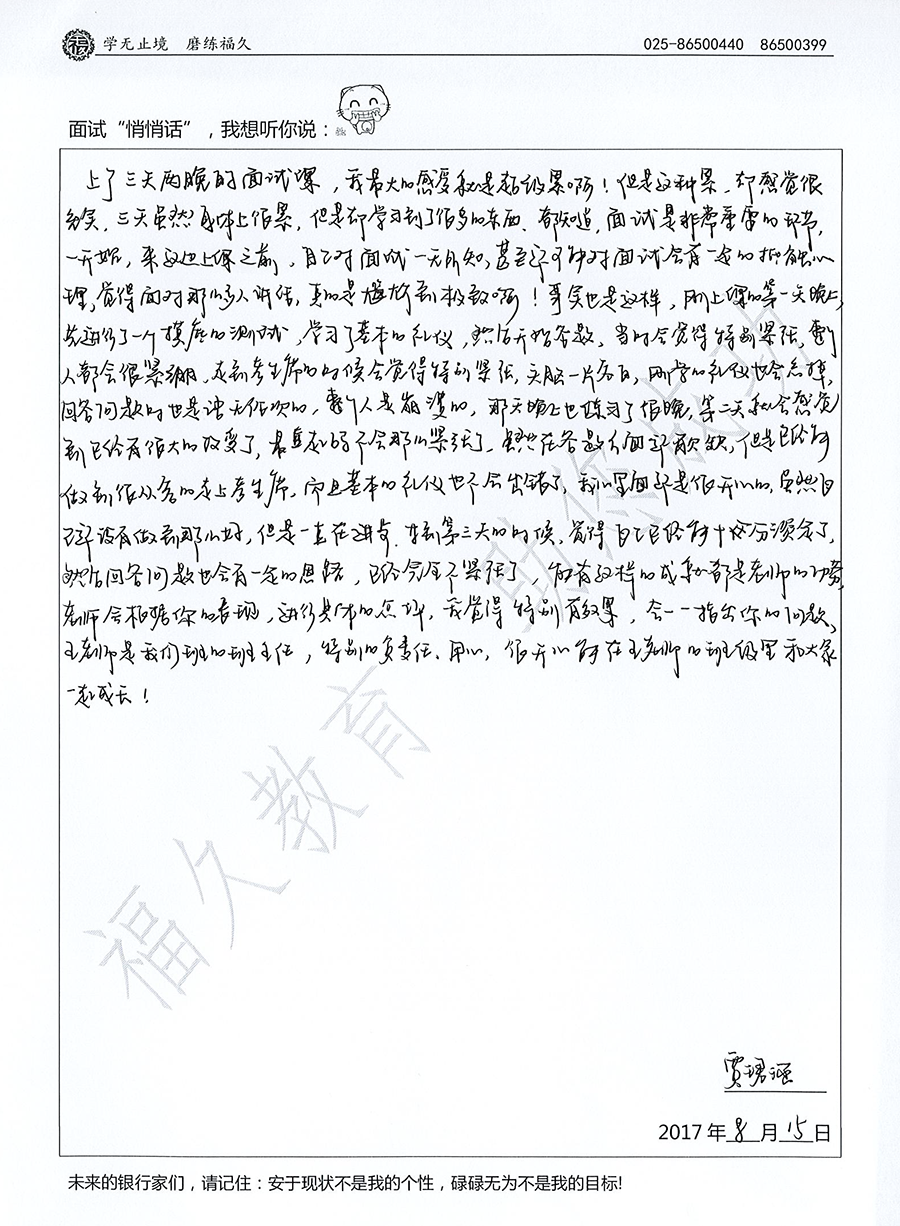 学无止境 磨练福久
025-86500440 86500399
面试“悄悄话”，我想听你说：
上了三天两晚的面试课，我最大的感受就是超级累啊！但是这种累，却感觉很
充实，三天虽然身体上很累，但是却学习到了很多的东西、都知道，面试是非常重要的环节，
一开始，来这边上课之前，自己对面试一无所知，甚至对面试会有一定的抵触心
理，觉得面对那么多人讲话，真的是尴尬到极致啊！事实也是这样，刚上课的第一天晚上，
先进行了一个摸底的测试，学习了基本的礼仪，然后开始答题，当时会觉得特别紧张，整个
人都会很紧绷，走到考生席的时候会觉得特别紧张，大脑一片空白，刚学的礼仪也会忘掉，
回答问题时也是语无伦次的，整个人是崩溃的，那天晚上也练习了很晚，第二天就会感觉
到已经有很大的改变了，最起码不会那么紧张了，虽然在答题方面还有欠缺，但是已经能
做到很从容的走上考生席，而且基本的礼仪也不会出错了，我心里面还是很开心的，虽然自
己还没有做到那么好，但是一直在进步，等到第三天的时候，觉得自己已经能十分从容了，
然后回答问题也会有一定的思路，已经完全不紧张了，能有这样的成果都是老师的功劳，
老师会根据你的表现，进行具体的点评，我觉得特别有效果，会一一指出你的问题，
王老师是我们班的班主任，特别的负责任、用心，很开心能在王老师的班级里和大家
一起成长！
助你成功
福久教育
贾珺涵
2017年8月15日
未来的银行家们，请记住：安于现状不是我的个性，碌碌无为不是我的目标!